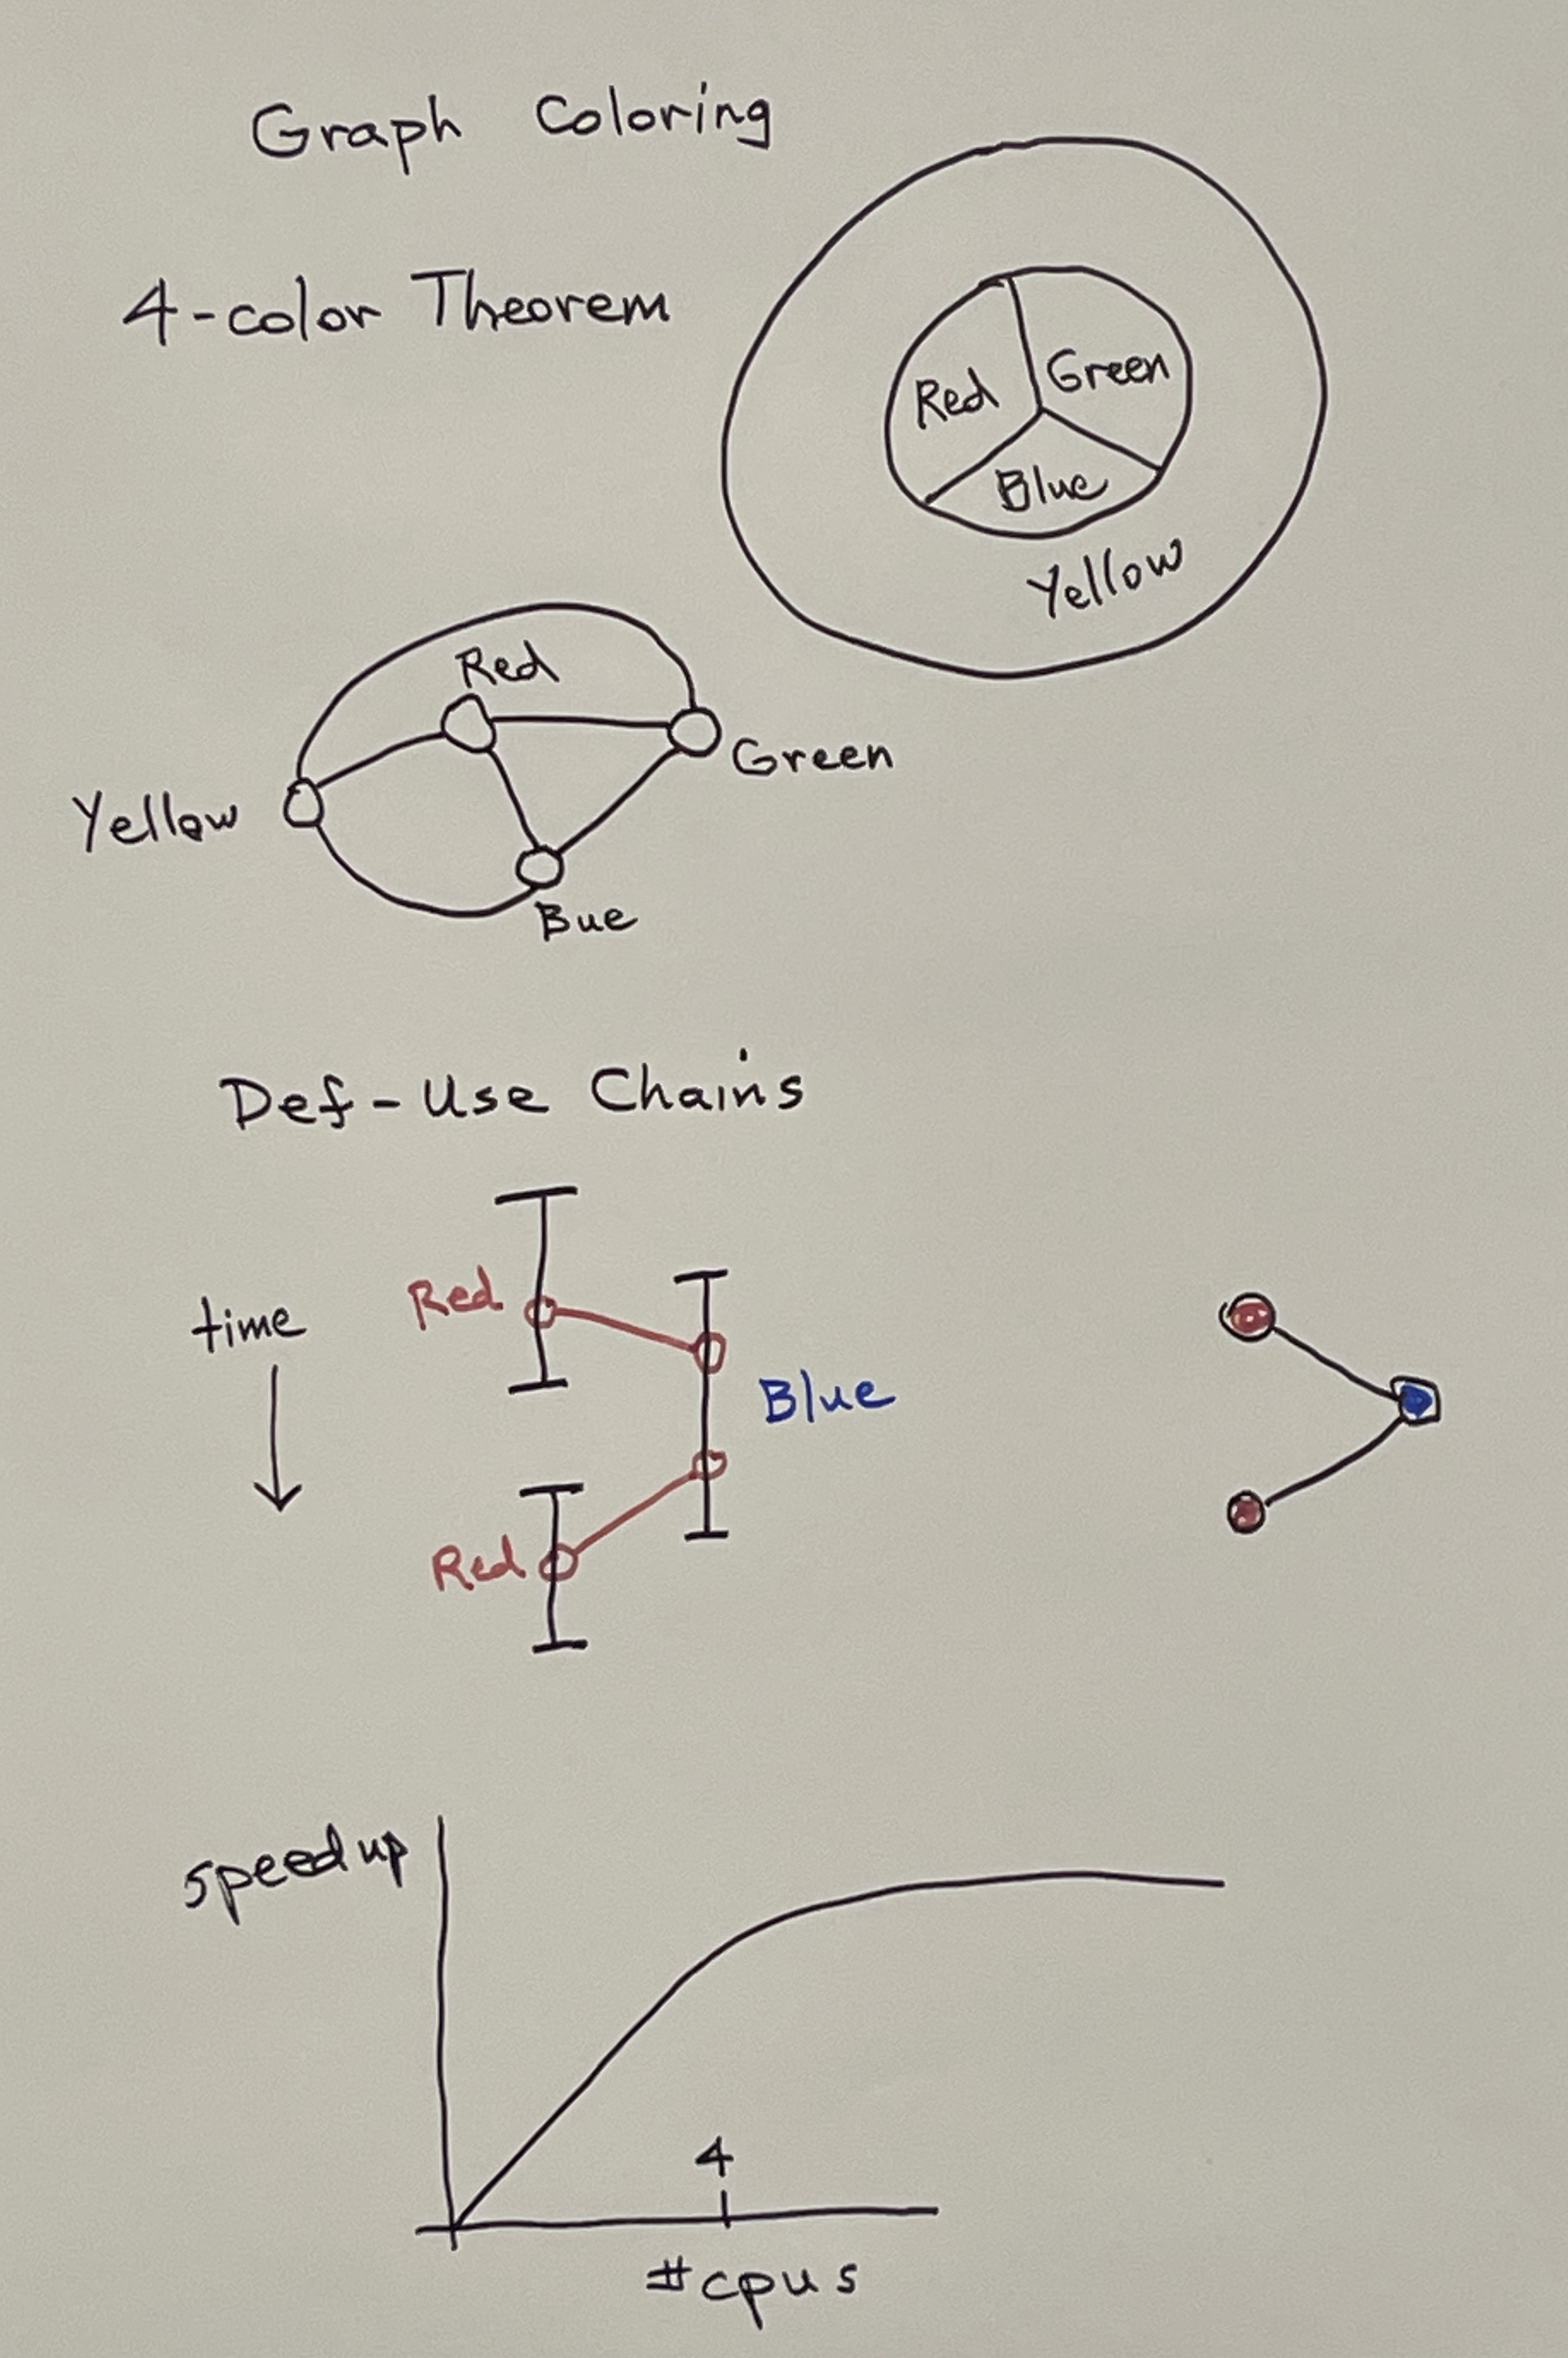 Graph Coloring
4-color Theorem
Red
Green
Blue
Yellow
Red
Green
Yellow
Bue
Def-Use Chains
time
Red
Blue
Red
speedup
4
#cpus